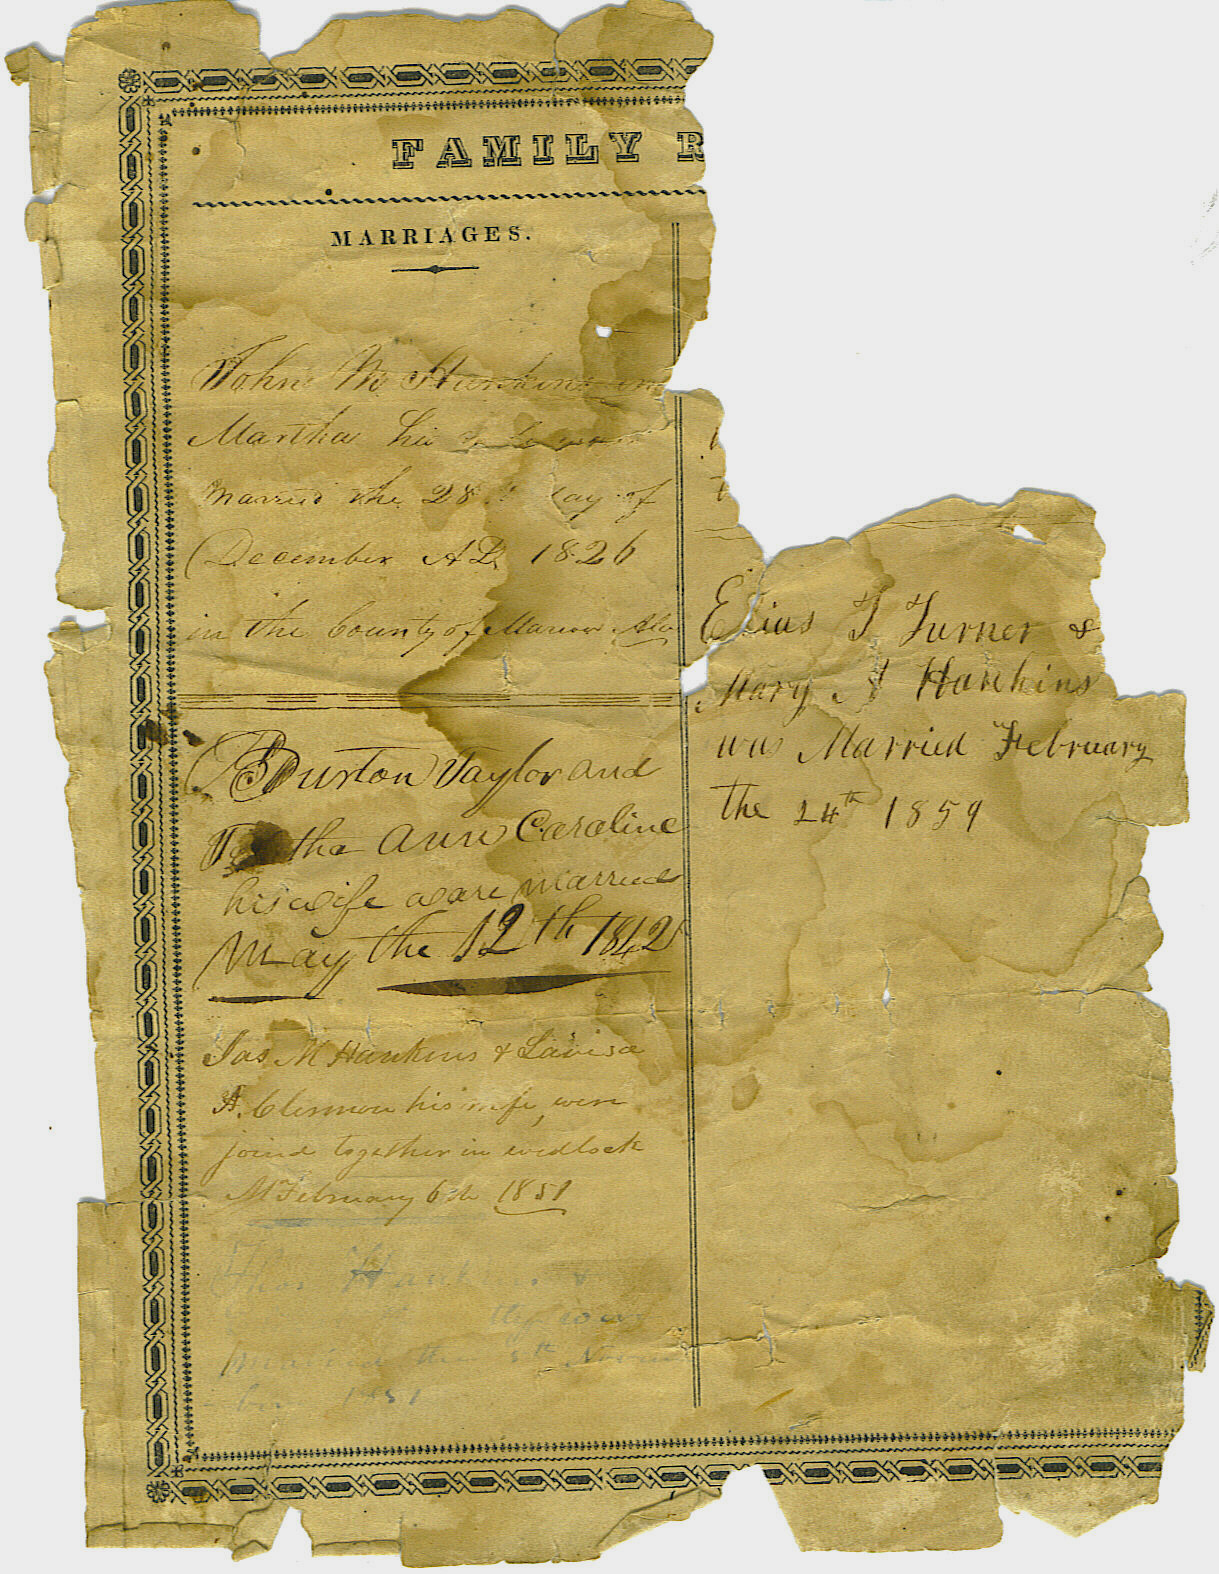 FAMILY R
MARRIAGES.
John M Hankins
Martha his
married the 28 day of
December AD 1826
in the County of Marion Ala
Burton Taylor and
tha Ann Caroline
his wife ware Married
May the 12th 1842
Jas M Hankins & Lavisa
A. Clemmon his wife were
joind together in wedlock
February 6th 1851
Thos Han
married the 5th Novem
ber 1851
Elias T Turner &
Mary A Hankins
was Married February
the 24th 1859